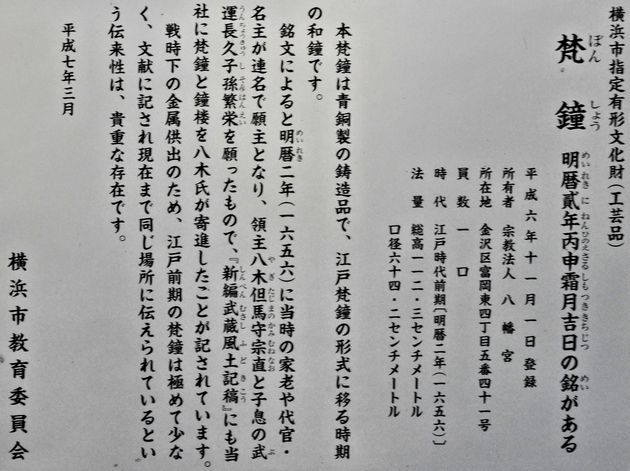 横浜市指定有形文化財(工芸品)
梵鐘 明暦貳年丙申霜月吉日の銘がある
ぼん しょう めいれき に ねんひのえさるしもつききちじつ めい
平成六年十一月一日登録
所有者 宗教法人 八幡宮
所在地 金沢区富岡東四丁目五番四十一号
員数 一口
時代 江戸時代前期〔明暦二年(一六五六)〕
法量 総高一一二・三センチメートル
口径六十四・二センチメートル
本梵鐘は青銅製の鋳造品で、江戸梵鐘の形式に移る時期
の和鐘です。
銘文によると明暦二年(一六五六)に当時の家老や代官・
めいれき
名主が連名で願主となり、領主八木但馬守宗直と子息の武
やぎ たじまのかみむねなお ぶ
運長久子孫繁栄を願ったもので、『新編武蔵風土記稿』にも当
うんちょうきゅう し そんはんえい しんぺんむさし ふ ど き こう
社に梵鐘と鐘楼を八木氏が寄進したことが記されています。
戦時下の金属供出のため、江戸前期の梵鐘は極めて少な
く、文献に記され現在まで同じ場所に伝えられているとい
う伝来性は、貴重な存在です。
平成七年三月
横浜市教育委員会